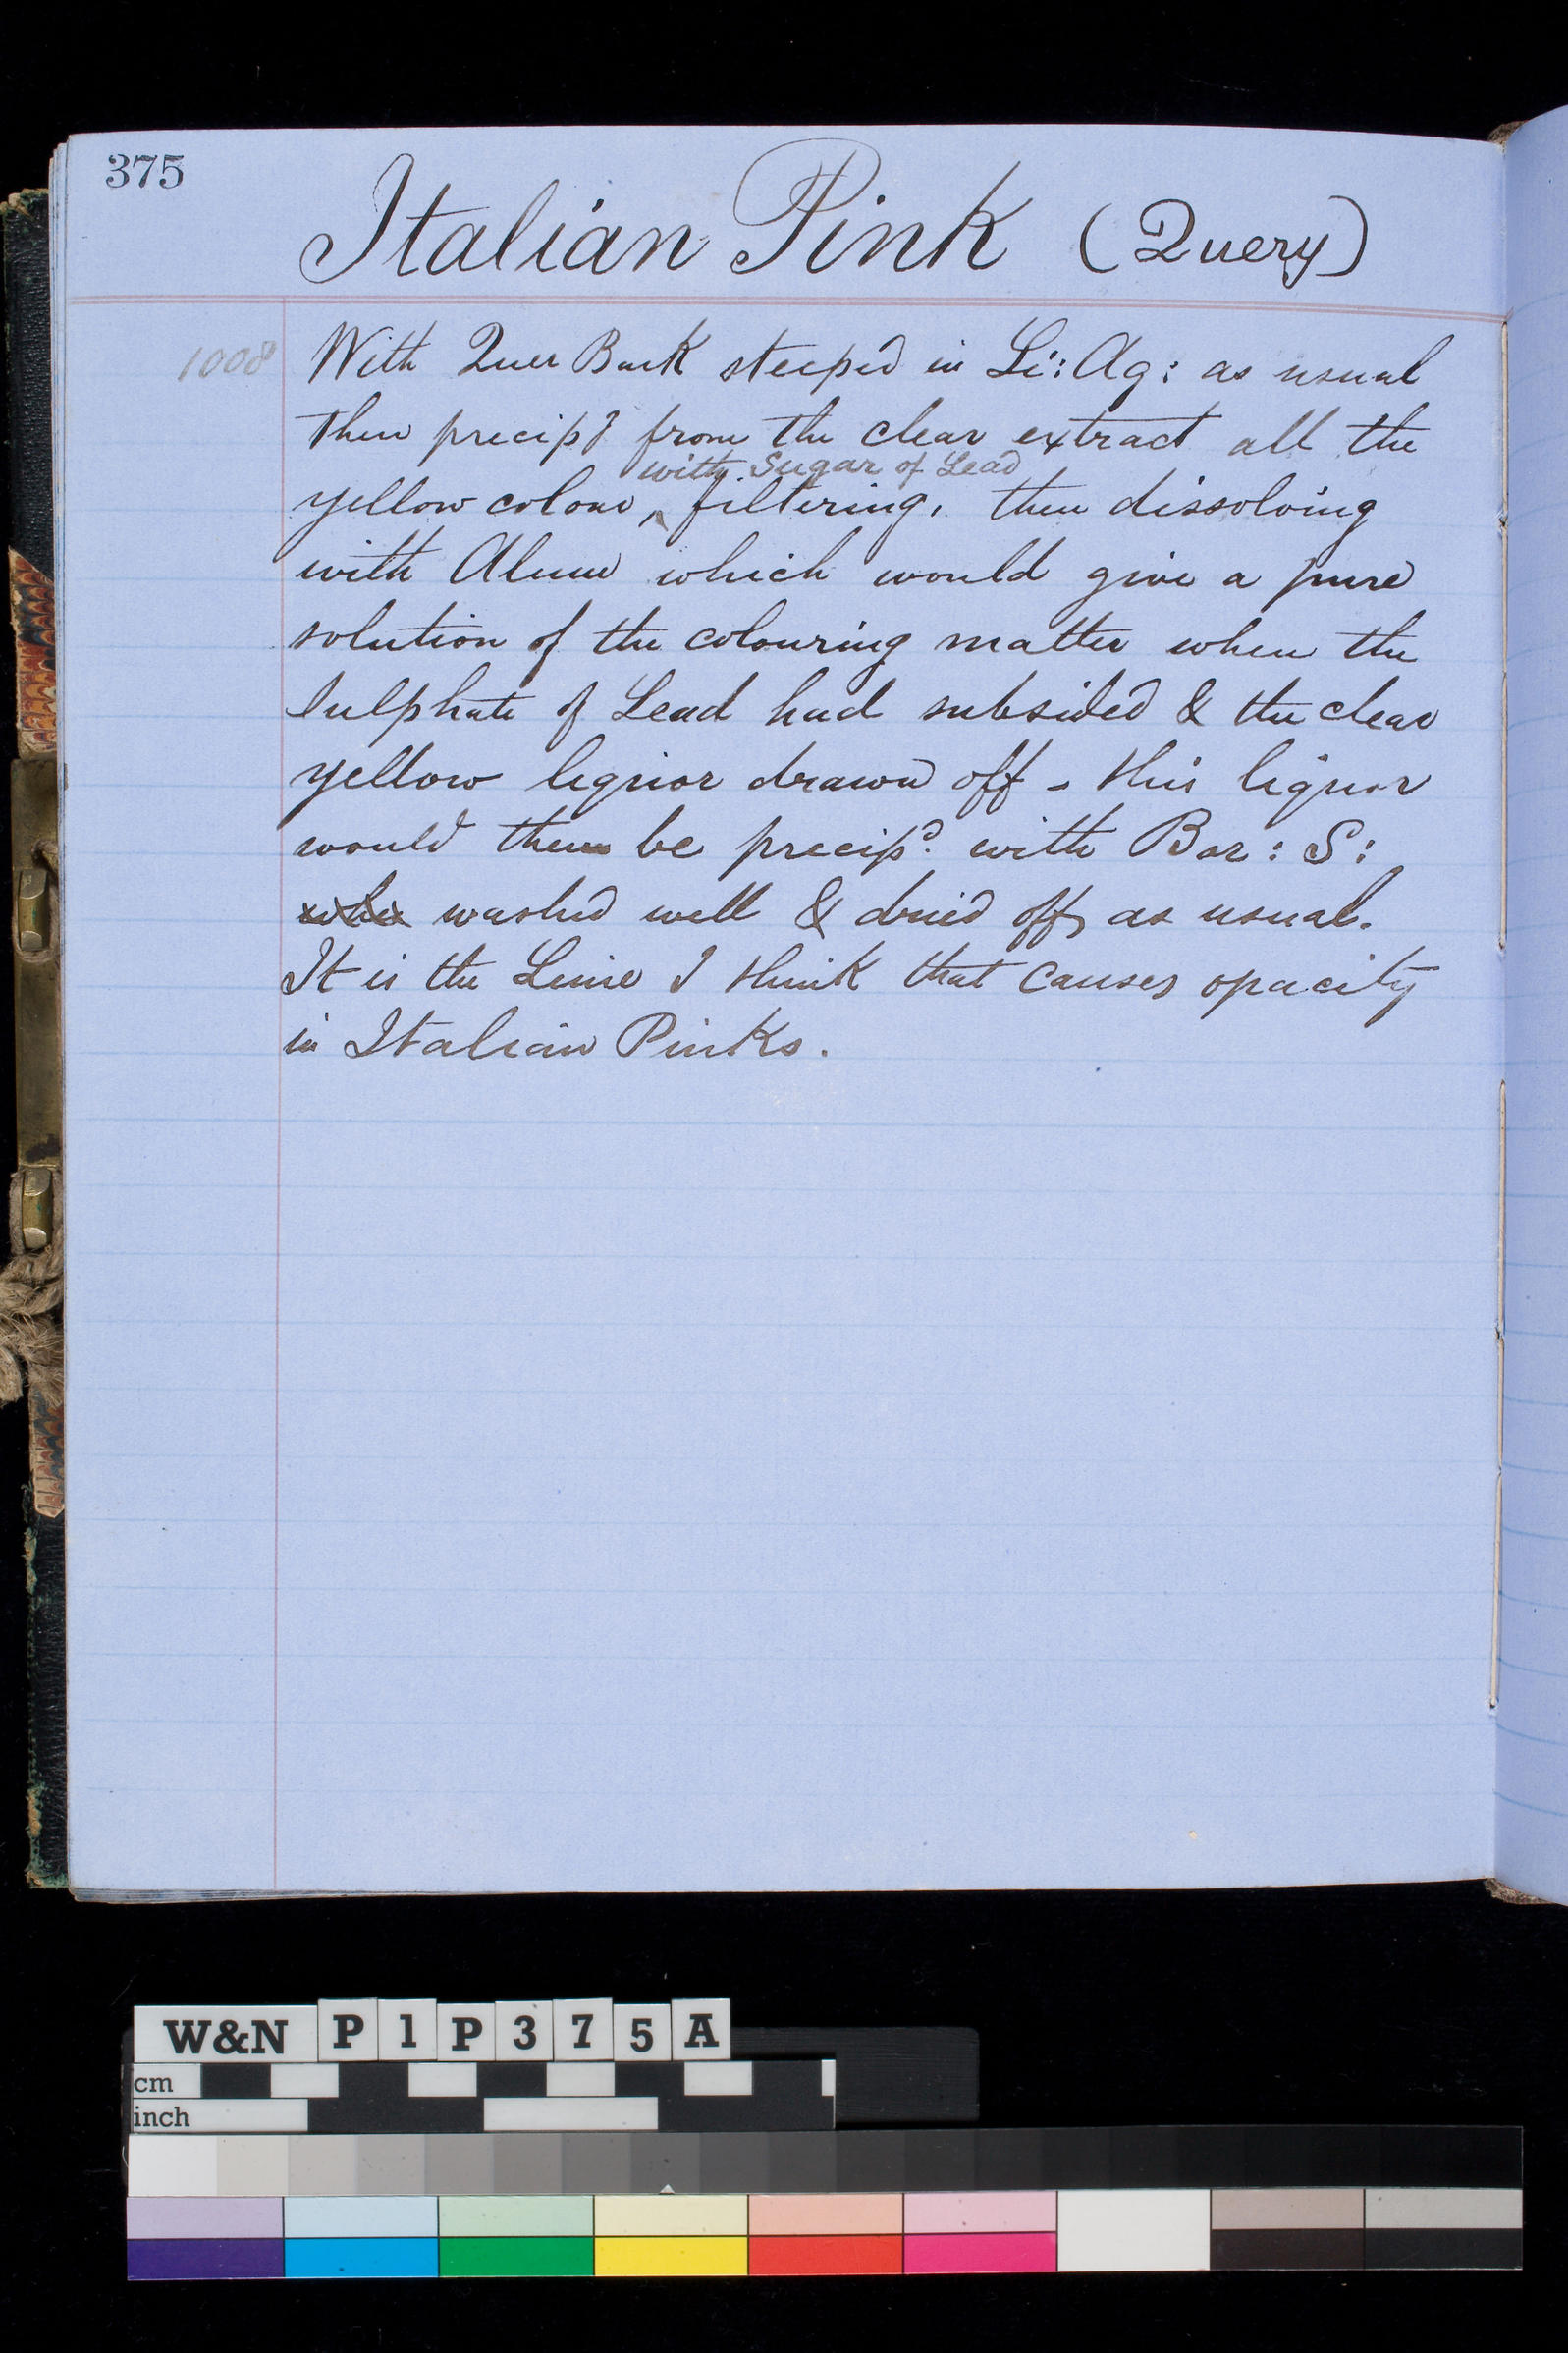 375
Italian Pink (Query)
1008
With Quer Bark steeped in Li: Aq: as usual
then precip^d from the clear extract all the
with Sugar of Lead
yellow colour, filtering, then dissolving
with Alum which would give a pure
solution of the colouring matter when the
Sulphate of Lead had subsided & the clear
yellow liquor drawn off - this liquor
would then be precip^d. with Bar: S:
washed well & dried off as usual.
It is the Lime I think that causes opacity
in Italian Pinks.
W&N P1P375A
cm
inch